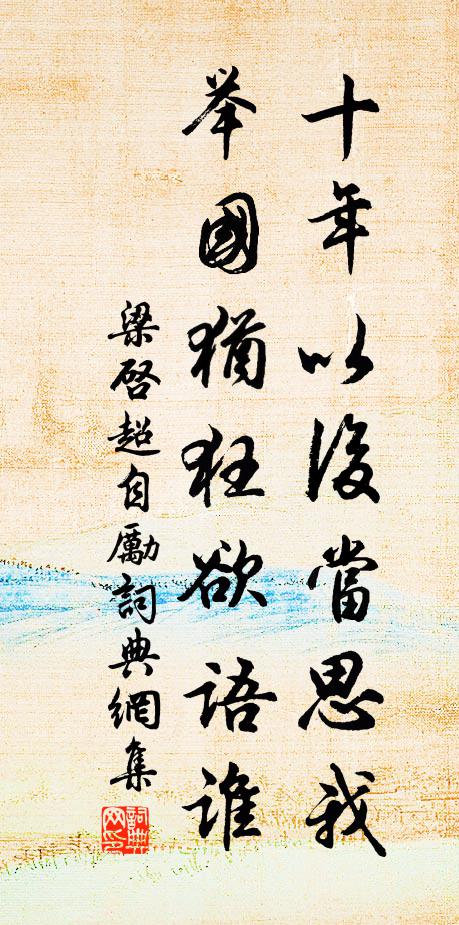 十年以後當思我
举國猶狂欲语谁
梁啓超自勵詞典網集
詞典网印